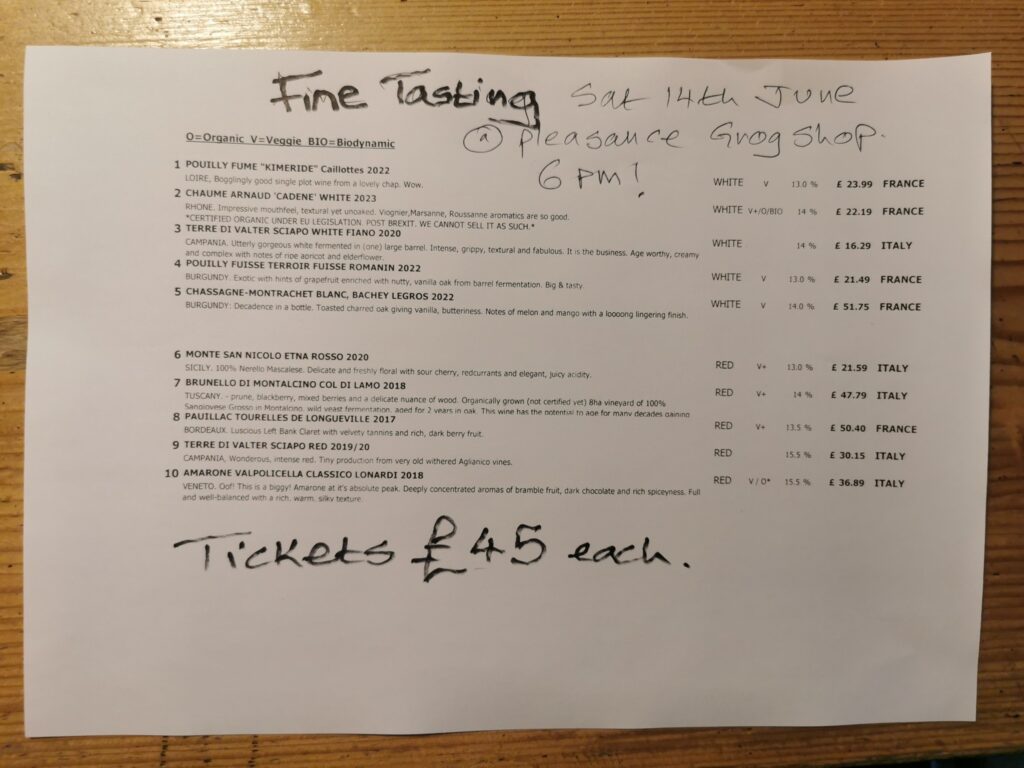 Fine Tasting Sat 14th June
@ Pleasance Grog Shop.
6 pm!
O=Organic V=Veggie BIO=Biodynamic
1 POUILLY FUME "KIMERIDE" Caillottes 2022
LOIRE, Bogglingly good single plot wine from a lovely chap. Wow. WHITE V 13.0 % £ 23.99 FRANCE
2 CHAUME ARNAUD 'CADENE' WHITE 2023
RHONE. Impressive mouthfeel, textural yet unoaked. Viognier,Marsanne, Roussanne aromatics are so good. WHITE V+/O/BIO 14 % £ 22.19 FRANCE
*CERTIFIED ORGANIC UNDER EU LEGISLATION. POST BREXIT. WE CANNOT SELL IT AS SUCH.*
3 TERRE DI VALTER SCIAPO WHITE FIANO 2020
CAMPANIA. Utterly gorgeous white fermented in (one) large barrel. Intense, grippy, textural and fabulous. It is the business. Age worthy, creamy WHITE 14 % £ 16.29 ITALY
and complex with notes of ripe apricot and elderflower.
4 POUILLY FUISSE TERROIR FUISSE ROMANIN 2022
BURGUNDY. Exotic with hints of grapefruit enriched with nutty, vanilla oak from barrel fermentation. Big & tasty. WHITE V 13.0 % £ 21.49 FRANCE
5 CHASSAGNE-MONTRACHET BLANC, BACHEY LEGROS 2022
BURGUNDY: Decadence in a bottle. Toasted charred oak giving vanilla, butteriness. Notes of melon and mango with a loooong lingering finish. WHITE V 14.0 % £ 51.75 FRANCE
6 MONTE SAN NICOLO ETNA ROSSO 2020
SICILY. 100% Nerello Mascalese. Delicate and freshly floral with sour cherry, redcurrants and elegant, juicy acidity. RED V+ 13.0 % £ 21.59 ITALY
7 BRUNELLO DI MONTALCINO COL DI LAMO 2018
TUSCANY. - prune, blackberry, mixed berries and a delicate nuance of wood. Organically grown (not certified yet) 8ha vineyard of 100% RED V+ 14 % £ 47.79 ITALY
Sangiovese Grosso in Montalcino. wild yeast fermentation. aged for 2 years in oak. This wine has the potential to age for many decades gaining
8 PAUILLAC TOURELLES DE LONGUEVILLE 2017
BORDEAUX. Luscious Left Bank Claret with velvety tannins and rich, dark berry fruit. RED V+ 13.5 % £ 50.40 FRANCE
9 TERRE DI VALTER SCIAPO RED 2019/20
CAMPANIA, Wonderous, intense red. Tiny production from very old withered Aglianico vines. RED 15.5 % £ 30.15 ITALY
10 AMARONE VALPOLICELLA CLASSICO LONARDI 2018
VENETO. Oof! This is a biggy! Amarone at it's absolute peak. Deeply concentrated aromas of bramble fruit, dark chocolate and rich spiceyness. Full RED V / O* 15.5 % £ 36.89 ITALY
and well-balanced with a rich, warm, silky texture.
Tickets £45 each.